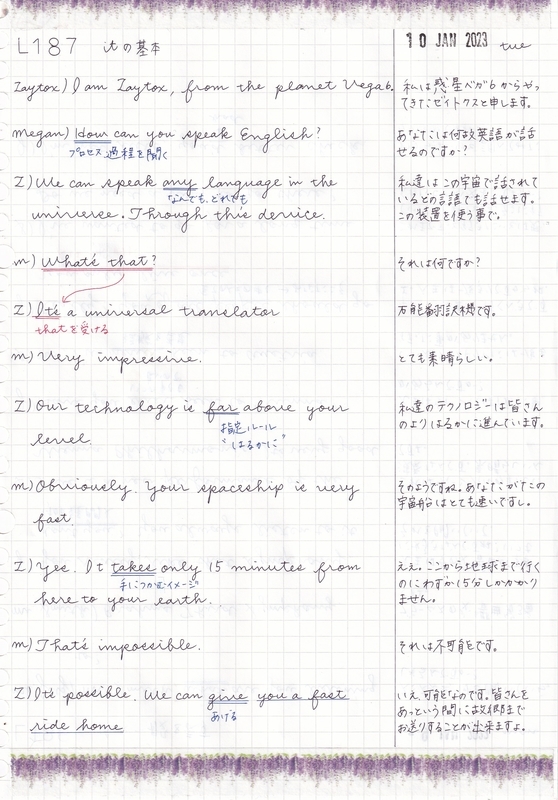 L187 itの基本
10 JAN 2023 tue
Zaytox) I am Zaytox, from the planet Vega6.
私は惑星ベガ6からやっ
てきたゼイトクスと申します。
megan) How can you speak English?
プロセス、過程を聞く
あなたは何故英語が話
せるのですか?
Z) We can speak any language in the
なんでも、どれでも
universe. Through this device.
私達はこの宇宙で話されて
いるどの言語でも話せます。
この装置を使う事で。
m) What's that?
それは何ですか?
Z) It's a universal translator
thatを受ける
万能翻訳機です。
m) Very impressive.
とても素晴らしい。
Z) Our technology is far above your
指定ルール
"はるかに"
level.
私達のテクノロジーは皆さん
のよりはるかに進んでいます。
m) Obviously. Your spaceship is very
fast.
そのようですね。あなたがたの
宇宙船はとても速いですし。
Z) Yes. It takes only 15 minutes from
手につかむイメージ
here to your earth.
ええ。ここから地球まで行く
のにわずか15分しかかかり
ません。
m) That's impossible.
それは不可能です。
Z) It's possible. We can give you a fast
あげる
ride home
いえ、可能なのです。皆さんを
あっという間に故郷まで
お送りすることが出来ますよ。